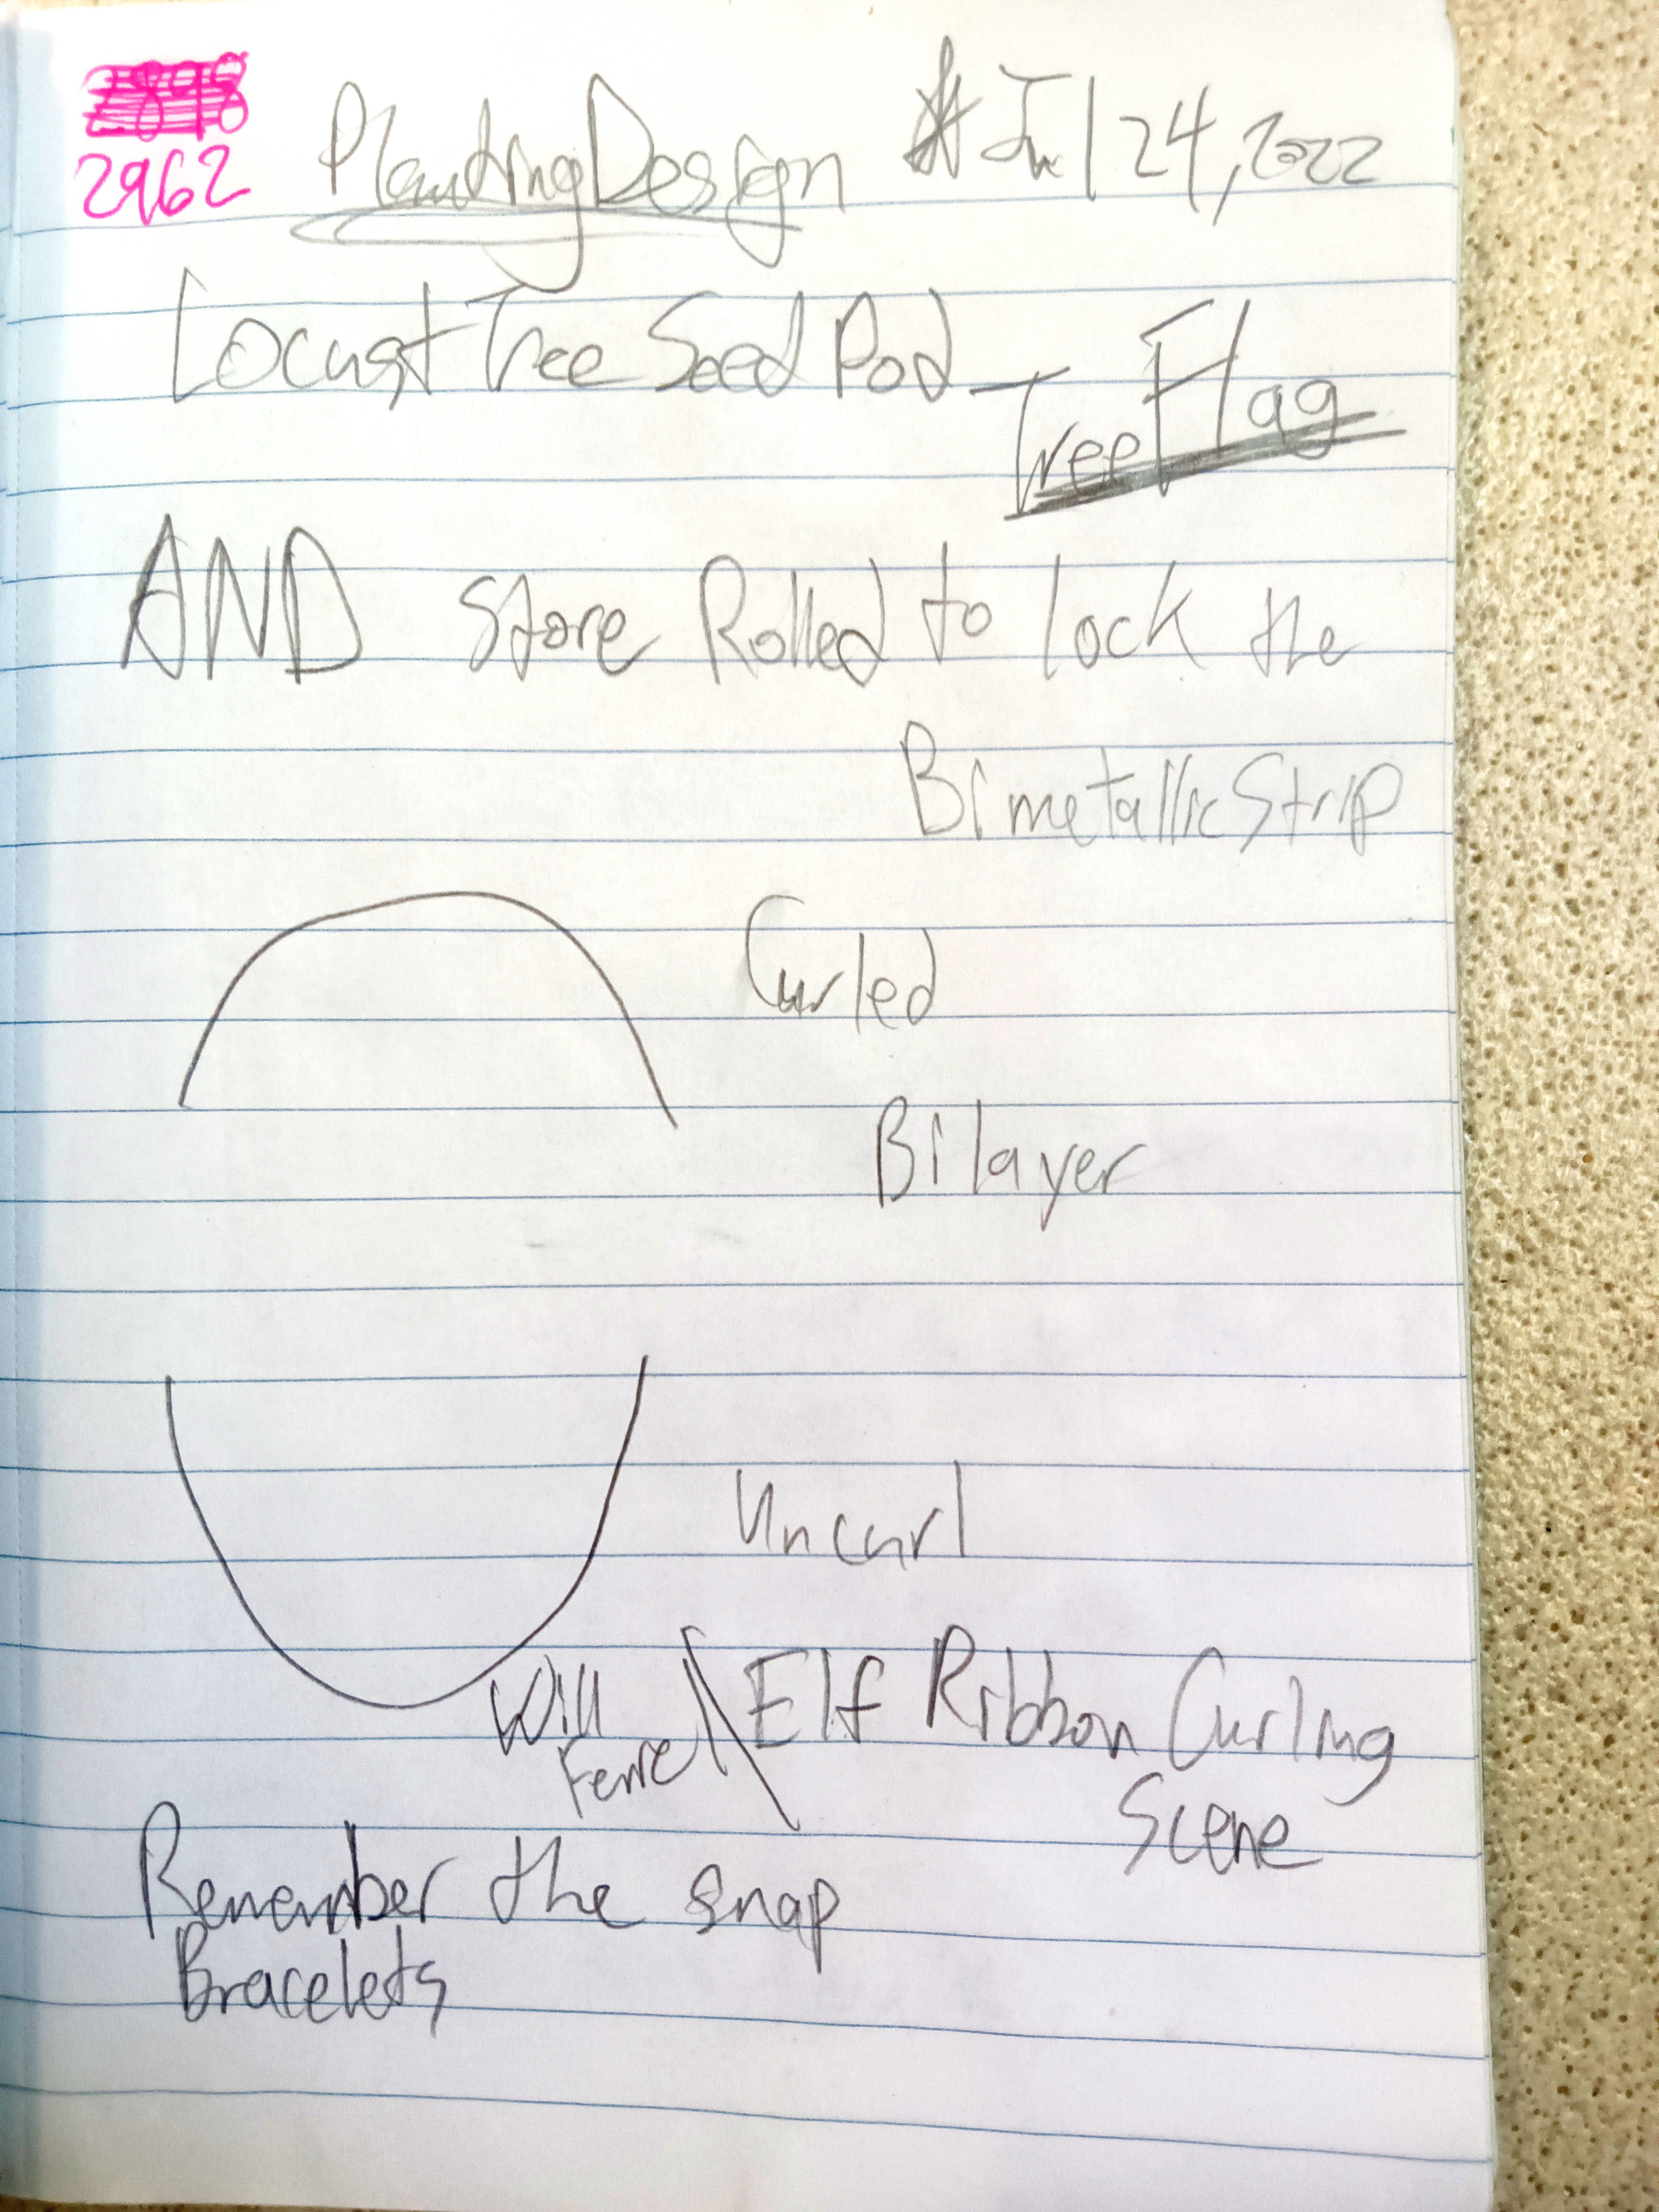 2898
2962
Planting Design Jul 24, 2022
Locust Tree Seed Pod
Tree Flag
AND Store Rolled to lock the
Bimetallic Strip
Curled
Bilayer
Uncurl
Will
Ferrel
Elf Ribbon Curling
Scene
Remember the snap
Bracelets